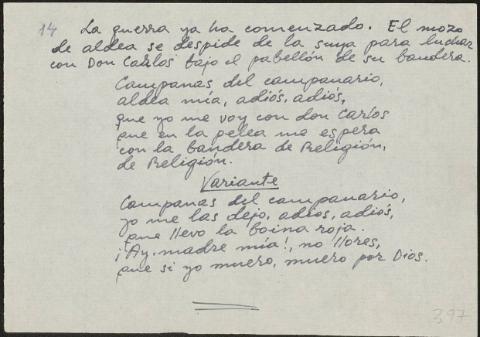 14 La guerra ya ha comenzado. El mozo
de aldea se despide de la suya para luchar
con Don Carlos bajo el pabellón de su bandera.
Campanas del campanario,
aldea mía, adiós, adiós,
que yo me voy con don Carlos
que en la pelea me espera
con la bandera de Religión,
de Religión.
Variante
Campanas del campanario,
yo me las dejo, adiós, adiós,
que llevo la boina roja.
¡Ay, madre mía!, no llores,
que si yo muero, muero por Dios.
397